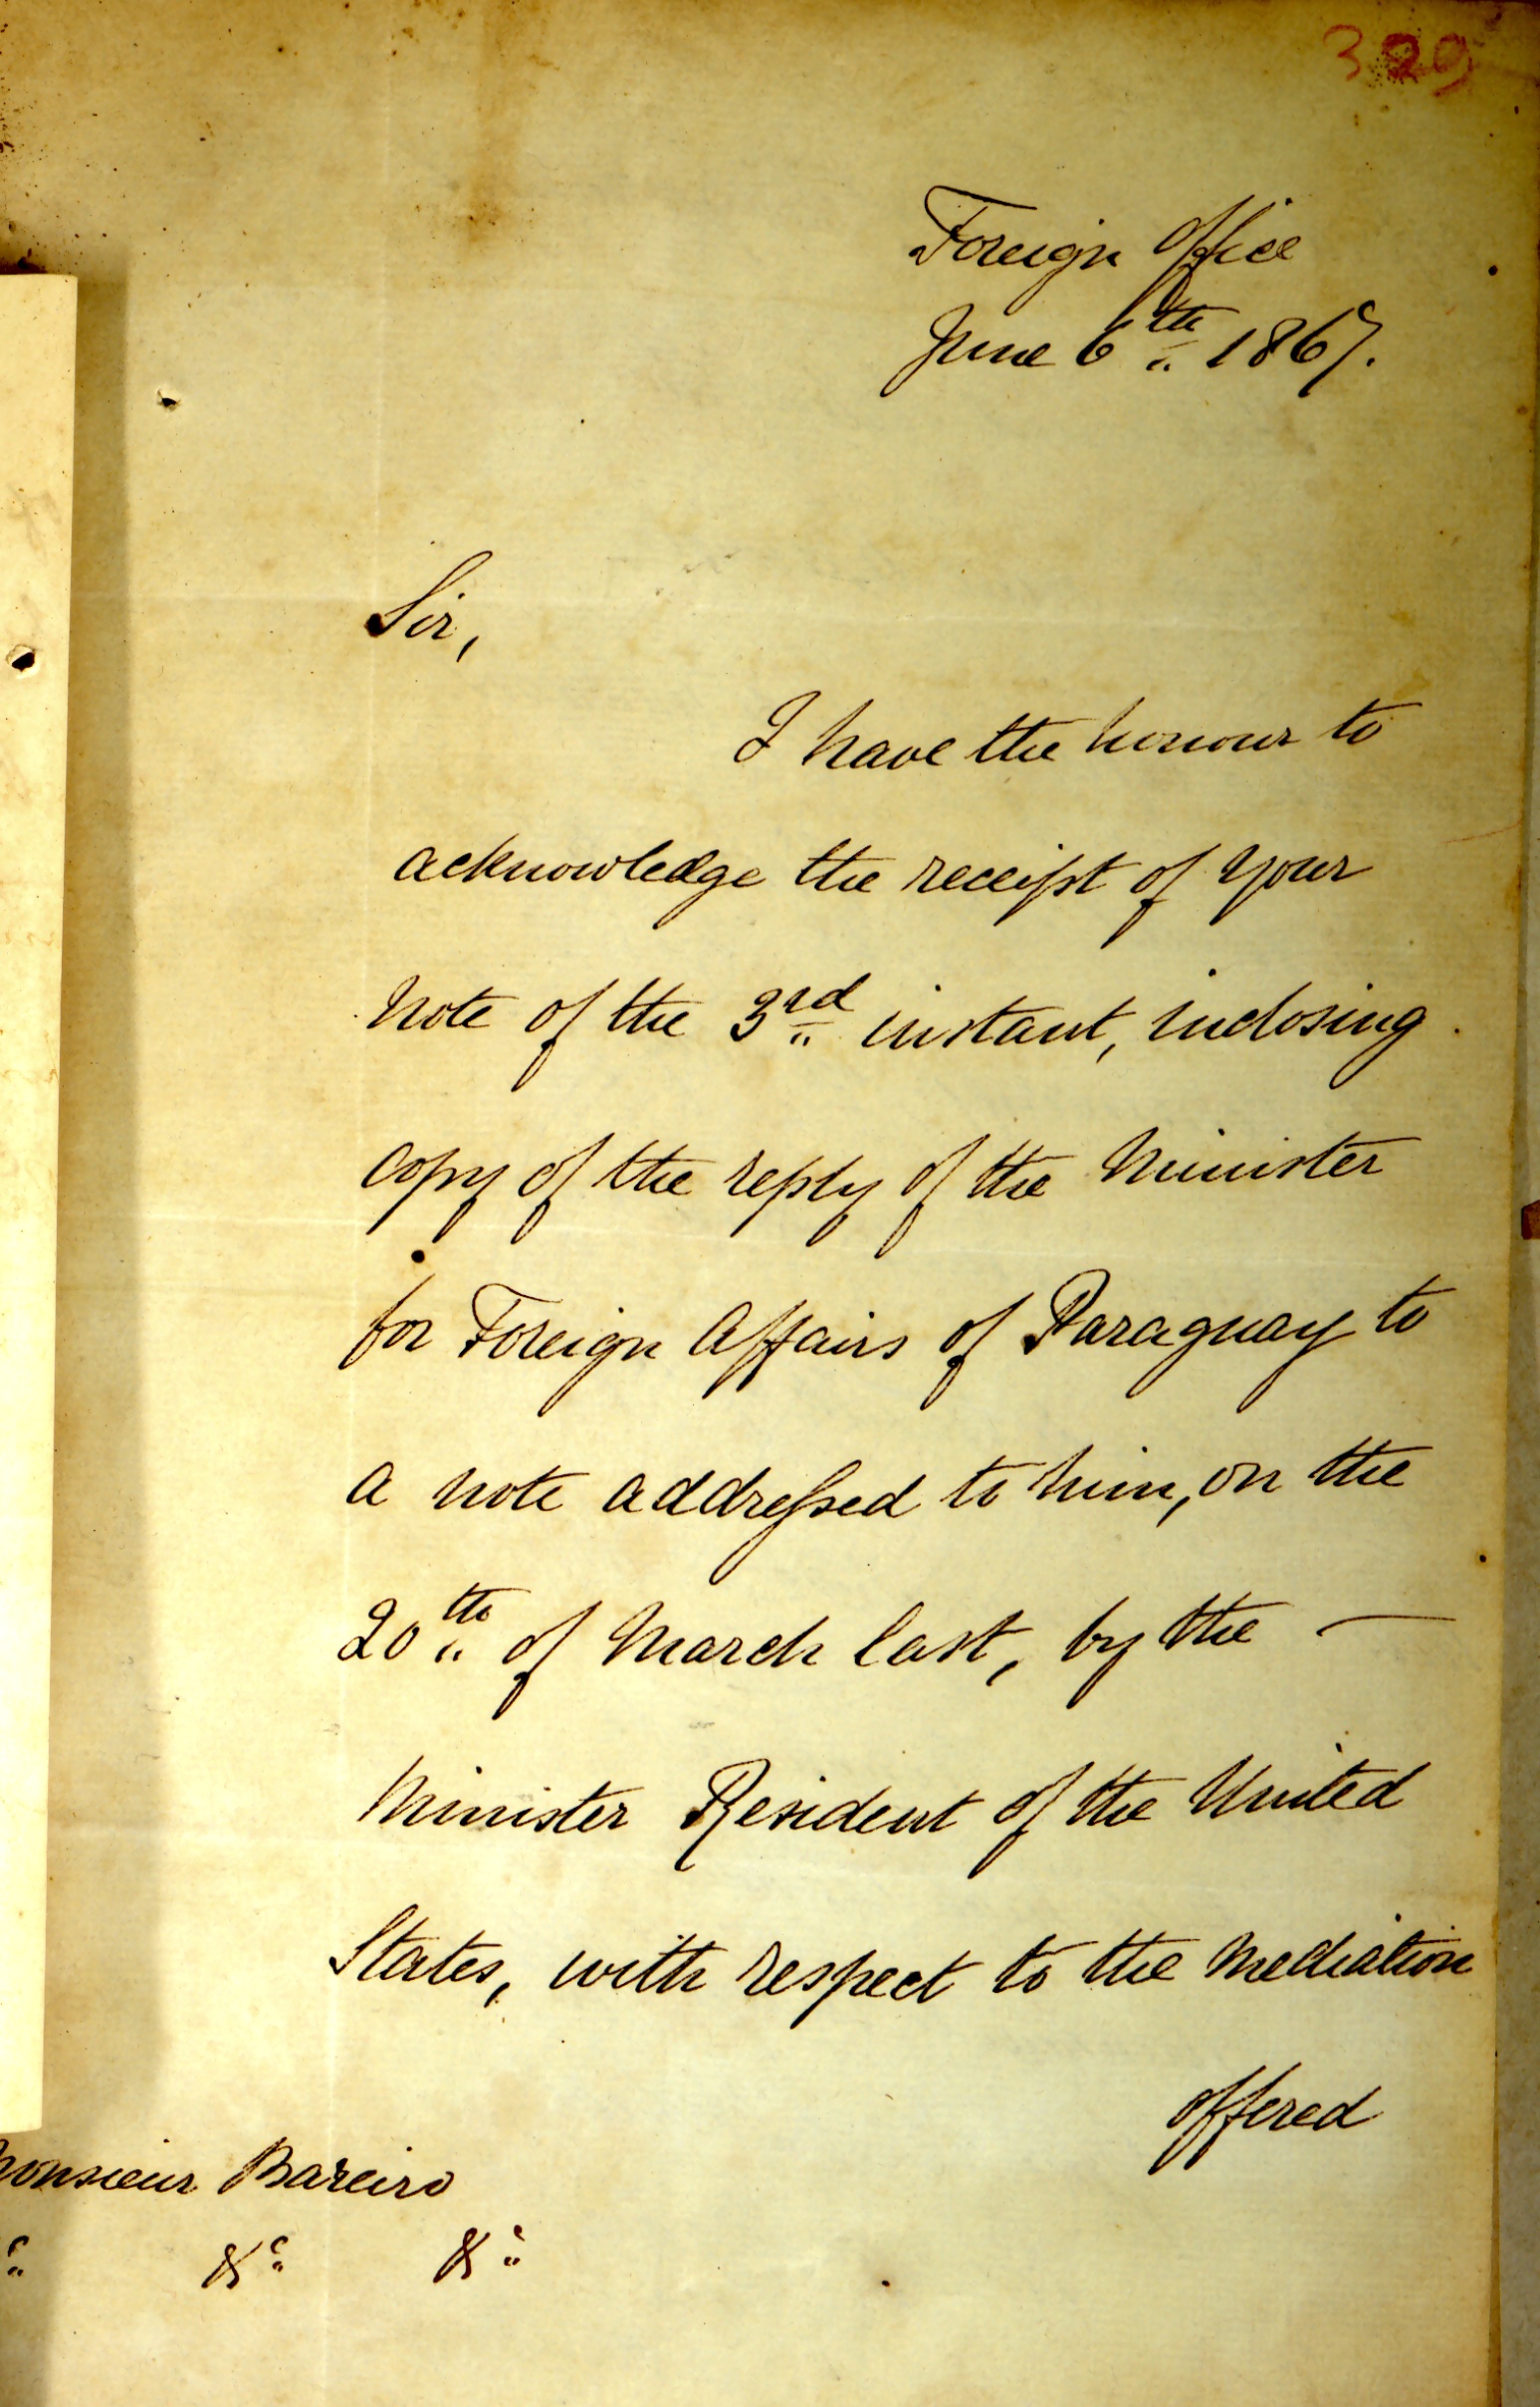 329
Foreign Office
June 6th 1867.
Sir,
I have the honour to
acknowledge the receipt of your
note of the 3rd instant, inclosing
copy of the reply of the Minister
for Foreign Affairs of Paraguay to
a note addressed to him, on the
20th of March last, by the —
Minister Resident of the United
States, with respect to the Mediation
offered
Monsieur Bareiro
&c &c